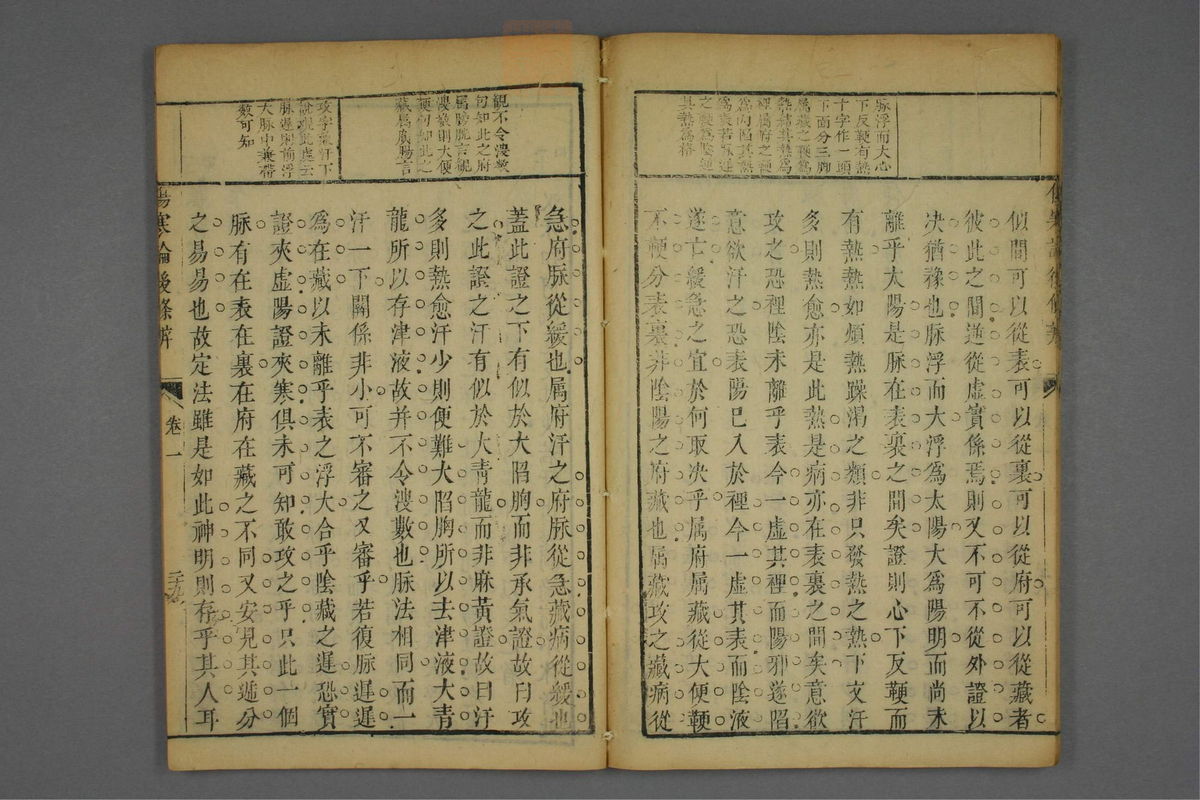 脉浮而大心
下反鞕有熱
十字作一頭
下面分三脚
属藏之鞕爲
熱爲其熱爲
裡属府之鞕
之鞕爲
其熱爲格
似間可以從表可以從裏可以從府可以從藏者
彼此之間逆從虚實係焉則又不可不從外證以
决猶豫也脉浮而大浮爲太陽大爲陽明而尚未
離乎大陽是脉在表裏之間矣證則心下反鞕而
有熱熱如煩熱躁渴之類非只發熱之熱下文汗
多則熱愈亦是此熱是病亦在表裏之間矣意欲
攻之恐裡陰未離乎表今一虚其裡而陽邪遂陷
意欲汗之恐表陽已入於裡今一虚其表而陰液
遂亡緩急之宜於何取决乎属府属藏從大便鞕
不鞕分表裏非陰陽之府藏也属藏攻之藏病從
觀不令溲數
句知此之府
属膀胱言觀
溲數則大便
鞕句知此之
藏属廣腸言
攻字兼汗下
說觀此處云
脉遲則前浮
大脉中兼帶
數可知
急府脉從緩也属府汗之府脉從急藏病從緩也
蓋此證之下有似於大陷胸而非承氣證故曰攻
之此證之汗有似於大青龍而非麻黃證故曰汗
多則熱愈汗少則便難大陷胸所以去津液大青
龍所以存津液故并不令溲數也脉法相同而一
汗一下關係非小可不審之又審乎若復脉遲遲
爲在藏以未離乎表之浮大合乎陰藏之遲恐實
證夾虚陽證夾寒俱未可知敢攻之乎只此一個
脉有在表在裏在府在藏之不同又安見其遞分
之易易也故定法雖是如此神明則存乎其人耳
傷寒論後條辨
卷一
二十九